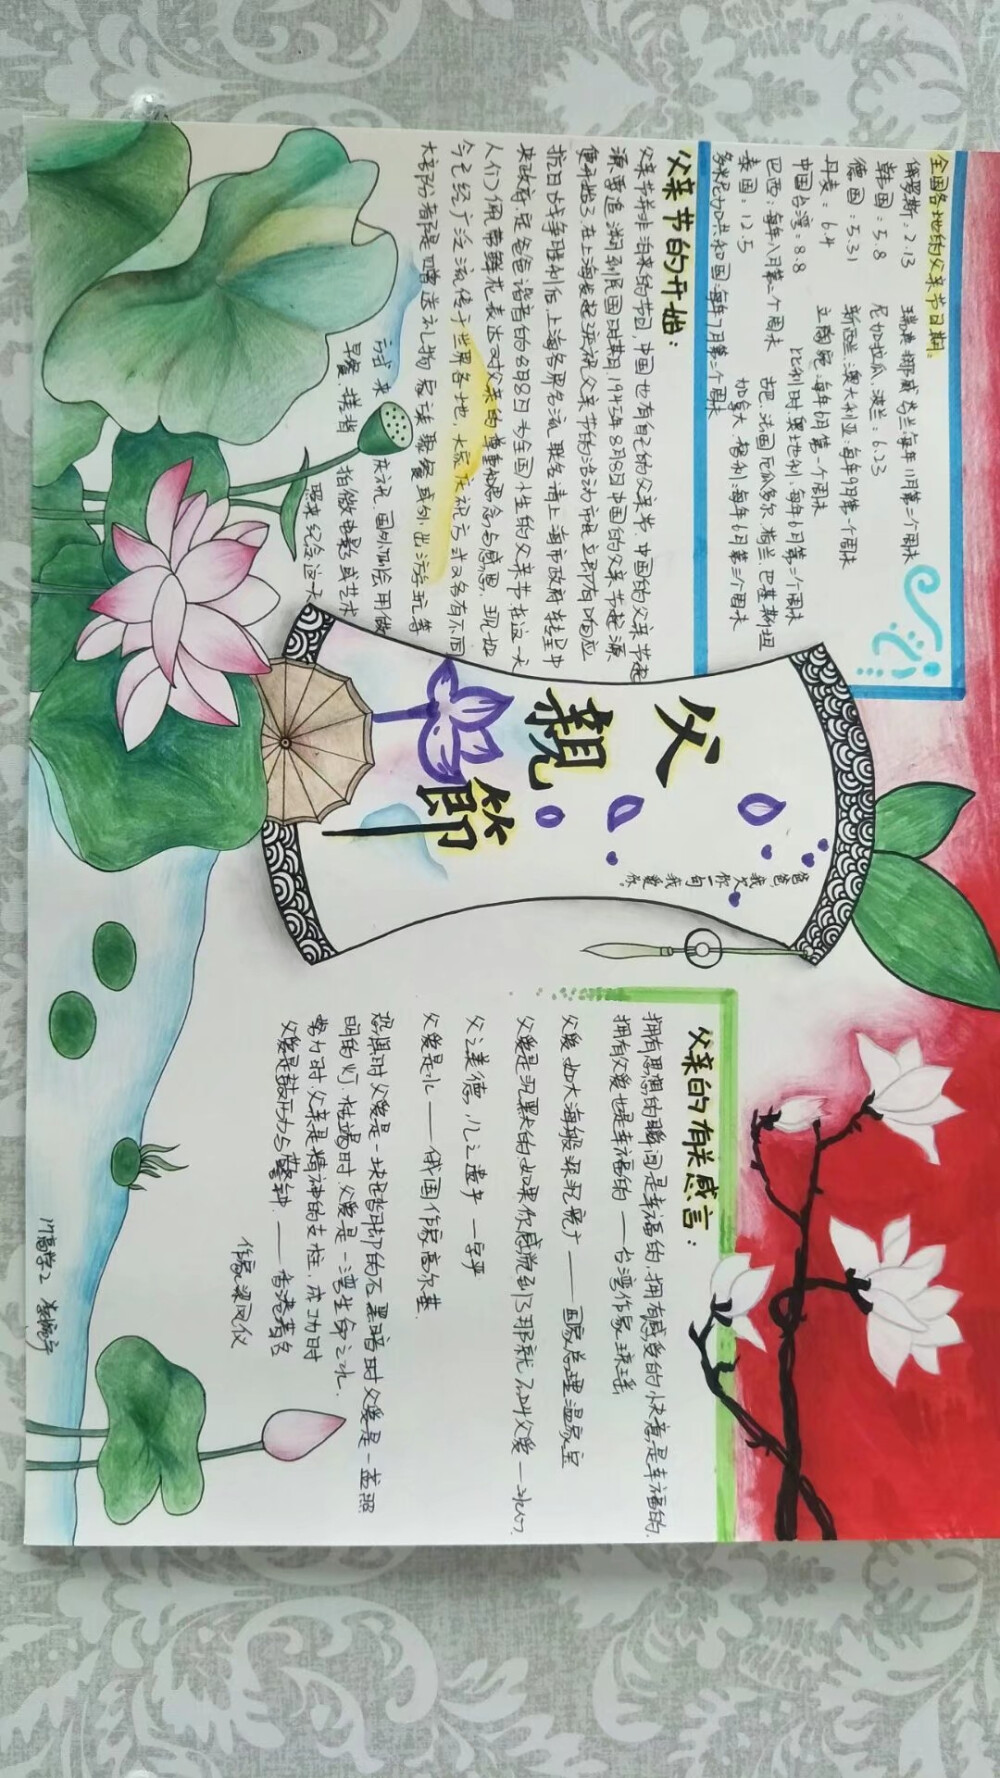 全国各地的父亲节日期:
俄罗斯:2.13 瑞典、挪威、芬兰每年11月第二个周末
韩国:5.8 尼加拉瓜、波兰:6.23
德国:5.31 新西兰、澳大利亚:每年9月第一个周末
丹麦:6.4 立陶宛:每年6月第一个周末
中国台湾:8.8 比利时、奥地利:每年6月第二个周末
巴西:每年八月第二个周末 古巴、法国、厄瓜多尔、荷兰、巴基斯坦
泰国:12.5 加拿大、智利:每年6月第三个周末
多米尼加共和国:每年7月第二个周末
父亲节的开始:
父亲节并非海来的节日,中国也有自己的父亲节,中国的父亲节起
源要追溯到民国时期,1945年8月8日中国的父亲节起源
便开始了,在上海发起庆祝父亲节的活动,市民立即有响应
抗日战争胜利后,上海各界名流联名请上海市政府转呈中
央政府,定爸爸谐音的8月8日为全国性的父亲节在这一天
人们佩带鲜花,表达对父亲的尊重和思念与感恩,现如
今已经广泛流传于世界各地,大家庆祝方式又各有不同
大部份都是赠送礼物,家族聚餐或外出游玩等
方式来庆祝,国外则会用做
早餐、搓背 拍微电影或艺术
照来纪念这一天
父親節
爸爸,我欠你一句我爱你。
父亲的有关感言:
拥有思想的瞬间,是幸福的,拥有感受的快意,是幸福的,
拥有父爱也是幸福的——台湾作家琼瑶
父爱,如大海般深沉宽广——国家总理温家宝
父爱是沉默的,如果你感觉到了那就不叫父爱——冰心
父之美德,儿之遗产——字严
父爱是水——俄国作家高尔基
恐惧时,父爱是一块踏脚的石,黑暗时,父爱是一盏照
明的灯,枯竭时,父爱是一湾生命之水,
努力时,父亲是精神的支柱,成功时
父爱是鼓励与警钟.——香港著名
作家梁凤仪